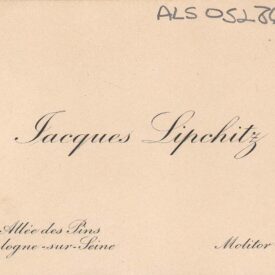 ALS 05286
Jacques Lipchitz
Allée des Pins
logne-sur-Seine
Molitor